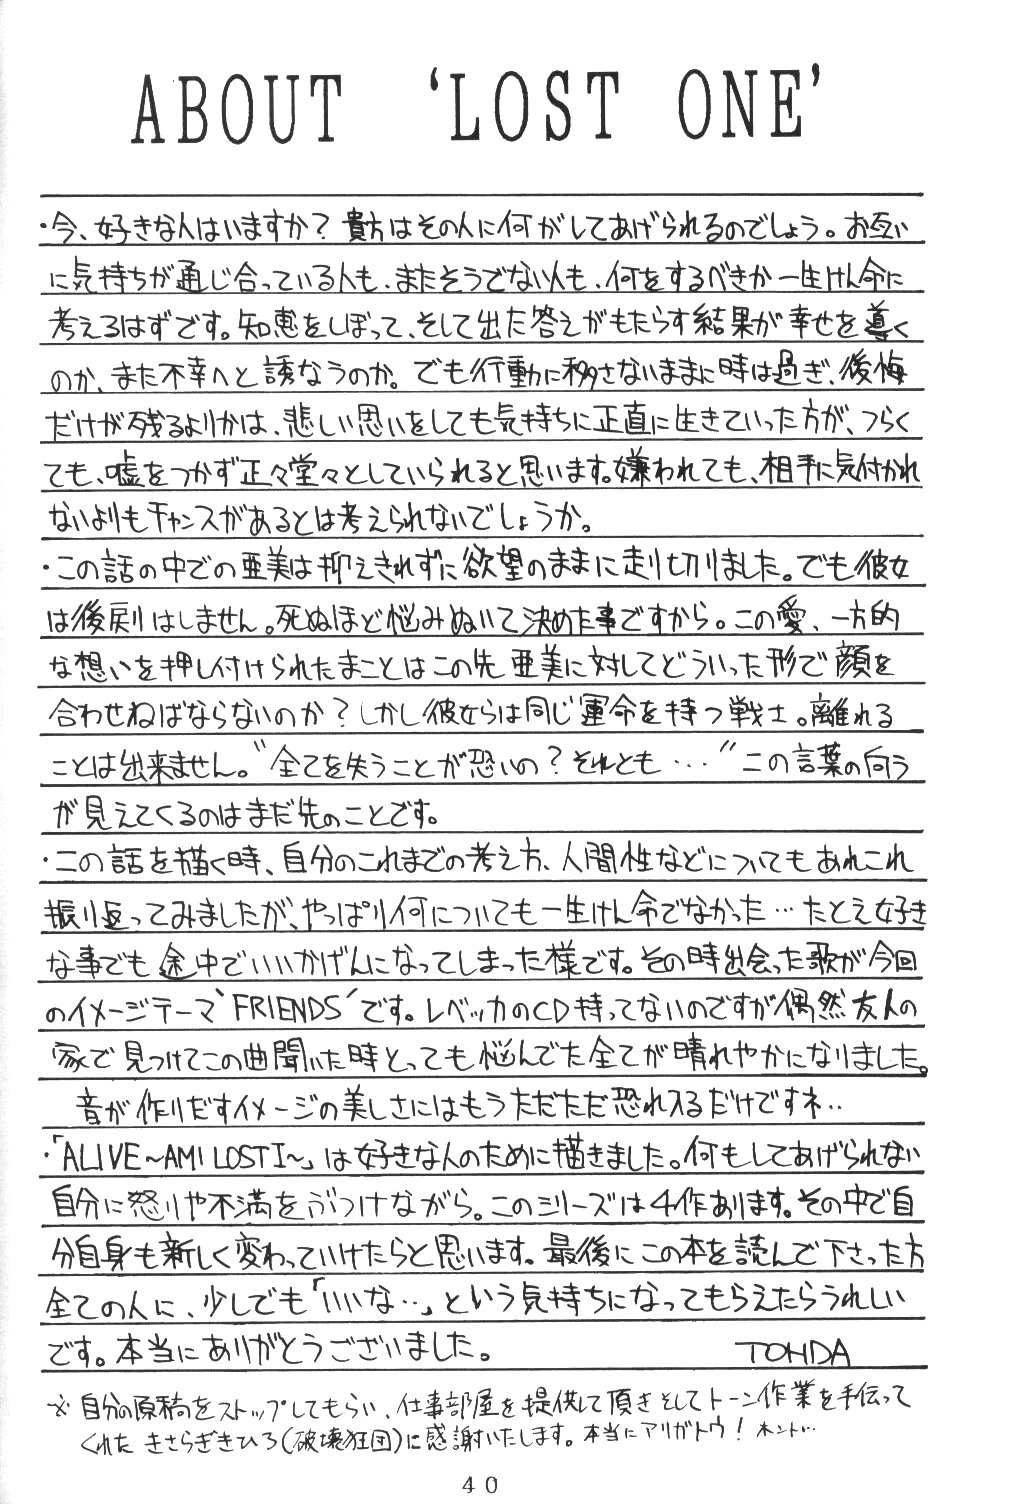 ABOUT 'LOST ONE'
・今、好きな人はいますか？貴方はその人に何がしてあげられるのでしょう。お互い
に気持ちが通じ合っている人も、またそうでない人も、何をするべきか一生けん命に
考えるはずです。知恵をしぼって、そして出た答えがもたらす結果が幸せを導く
のか、また不幸へと誘なうのか。でも行動に移さないままに時は過ぎ、後悔
だけが残るよりかは、悲しい思いをしても気持ちに正直に生きていった方が、つらく
ても、嘘をつかず正々堂々としていられると思います。嫌われても、相手に気付かれ
ないよりもチャンスがあるとは考えられないでしょうか。
・この話の中での亜美は抑えきれずに欲望のままに走り切りました。でも彼女
は後戻りはしません。死ぬほど悩みぬいて決めた事ですから。この愛、一方的
な想いを押し付けられたまことはこの先亜美に対してどういった形で顔を
合わせねばならないのか？しかし彼女らは同じ運命を持つ戦士。離れる
ことは出来ません。"全てを失うことが恐いの？それとも・・・"この言葉の向う
が見えてくるのはまだ先のことです。
・この話を描く時、自分のこれまでの考え方、人間性などについてもあれこれ
振り返ってみましたが、やっぱり何についても一生けん命でなかった…たとえ好き
な事でも途中でいいかげんになってしまった様です。その時出会った歌が今回
のイメージテーマ`FRIENDS´です。レベッカのCD持ってないのですが偶然友人の
家で見つけてこの曲聞いた時とっても悩んでた全てが晴れやかになりました。
音が作りだすイメージの美しさにはもうただただ恐れ入るだけですネ‥
・「ALIVE～AMI LOST I～」は好きな人のために描きました。何もしてあげられない
自分に怒りや不満をぶつけながら。このシリーズは4作あります。その中で自
分自身も新しく変わっていけたらと思います。最後にこの本を読んで下さった方
全ての人に、少しでも「いいな…」という気持ちになってもらえたらうれしい
です。本当にありがとうございました。 TOHDA
※自分の原稿をストップしてもらい、仕事部屋を提供して頂きそしてトーン作業を手伝って
くれた きさらぎきひろ(破壊狂団)に感謝いたします。本当にアリガトウ！ホント…
40